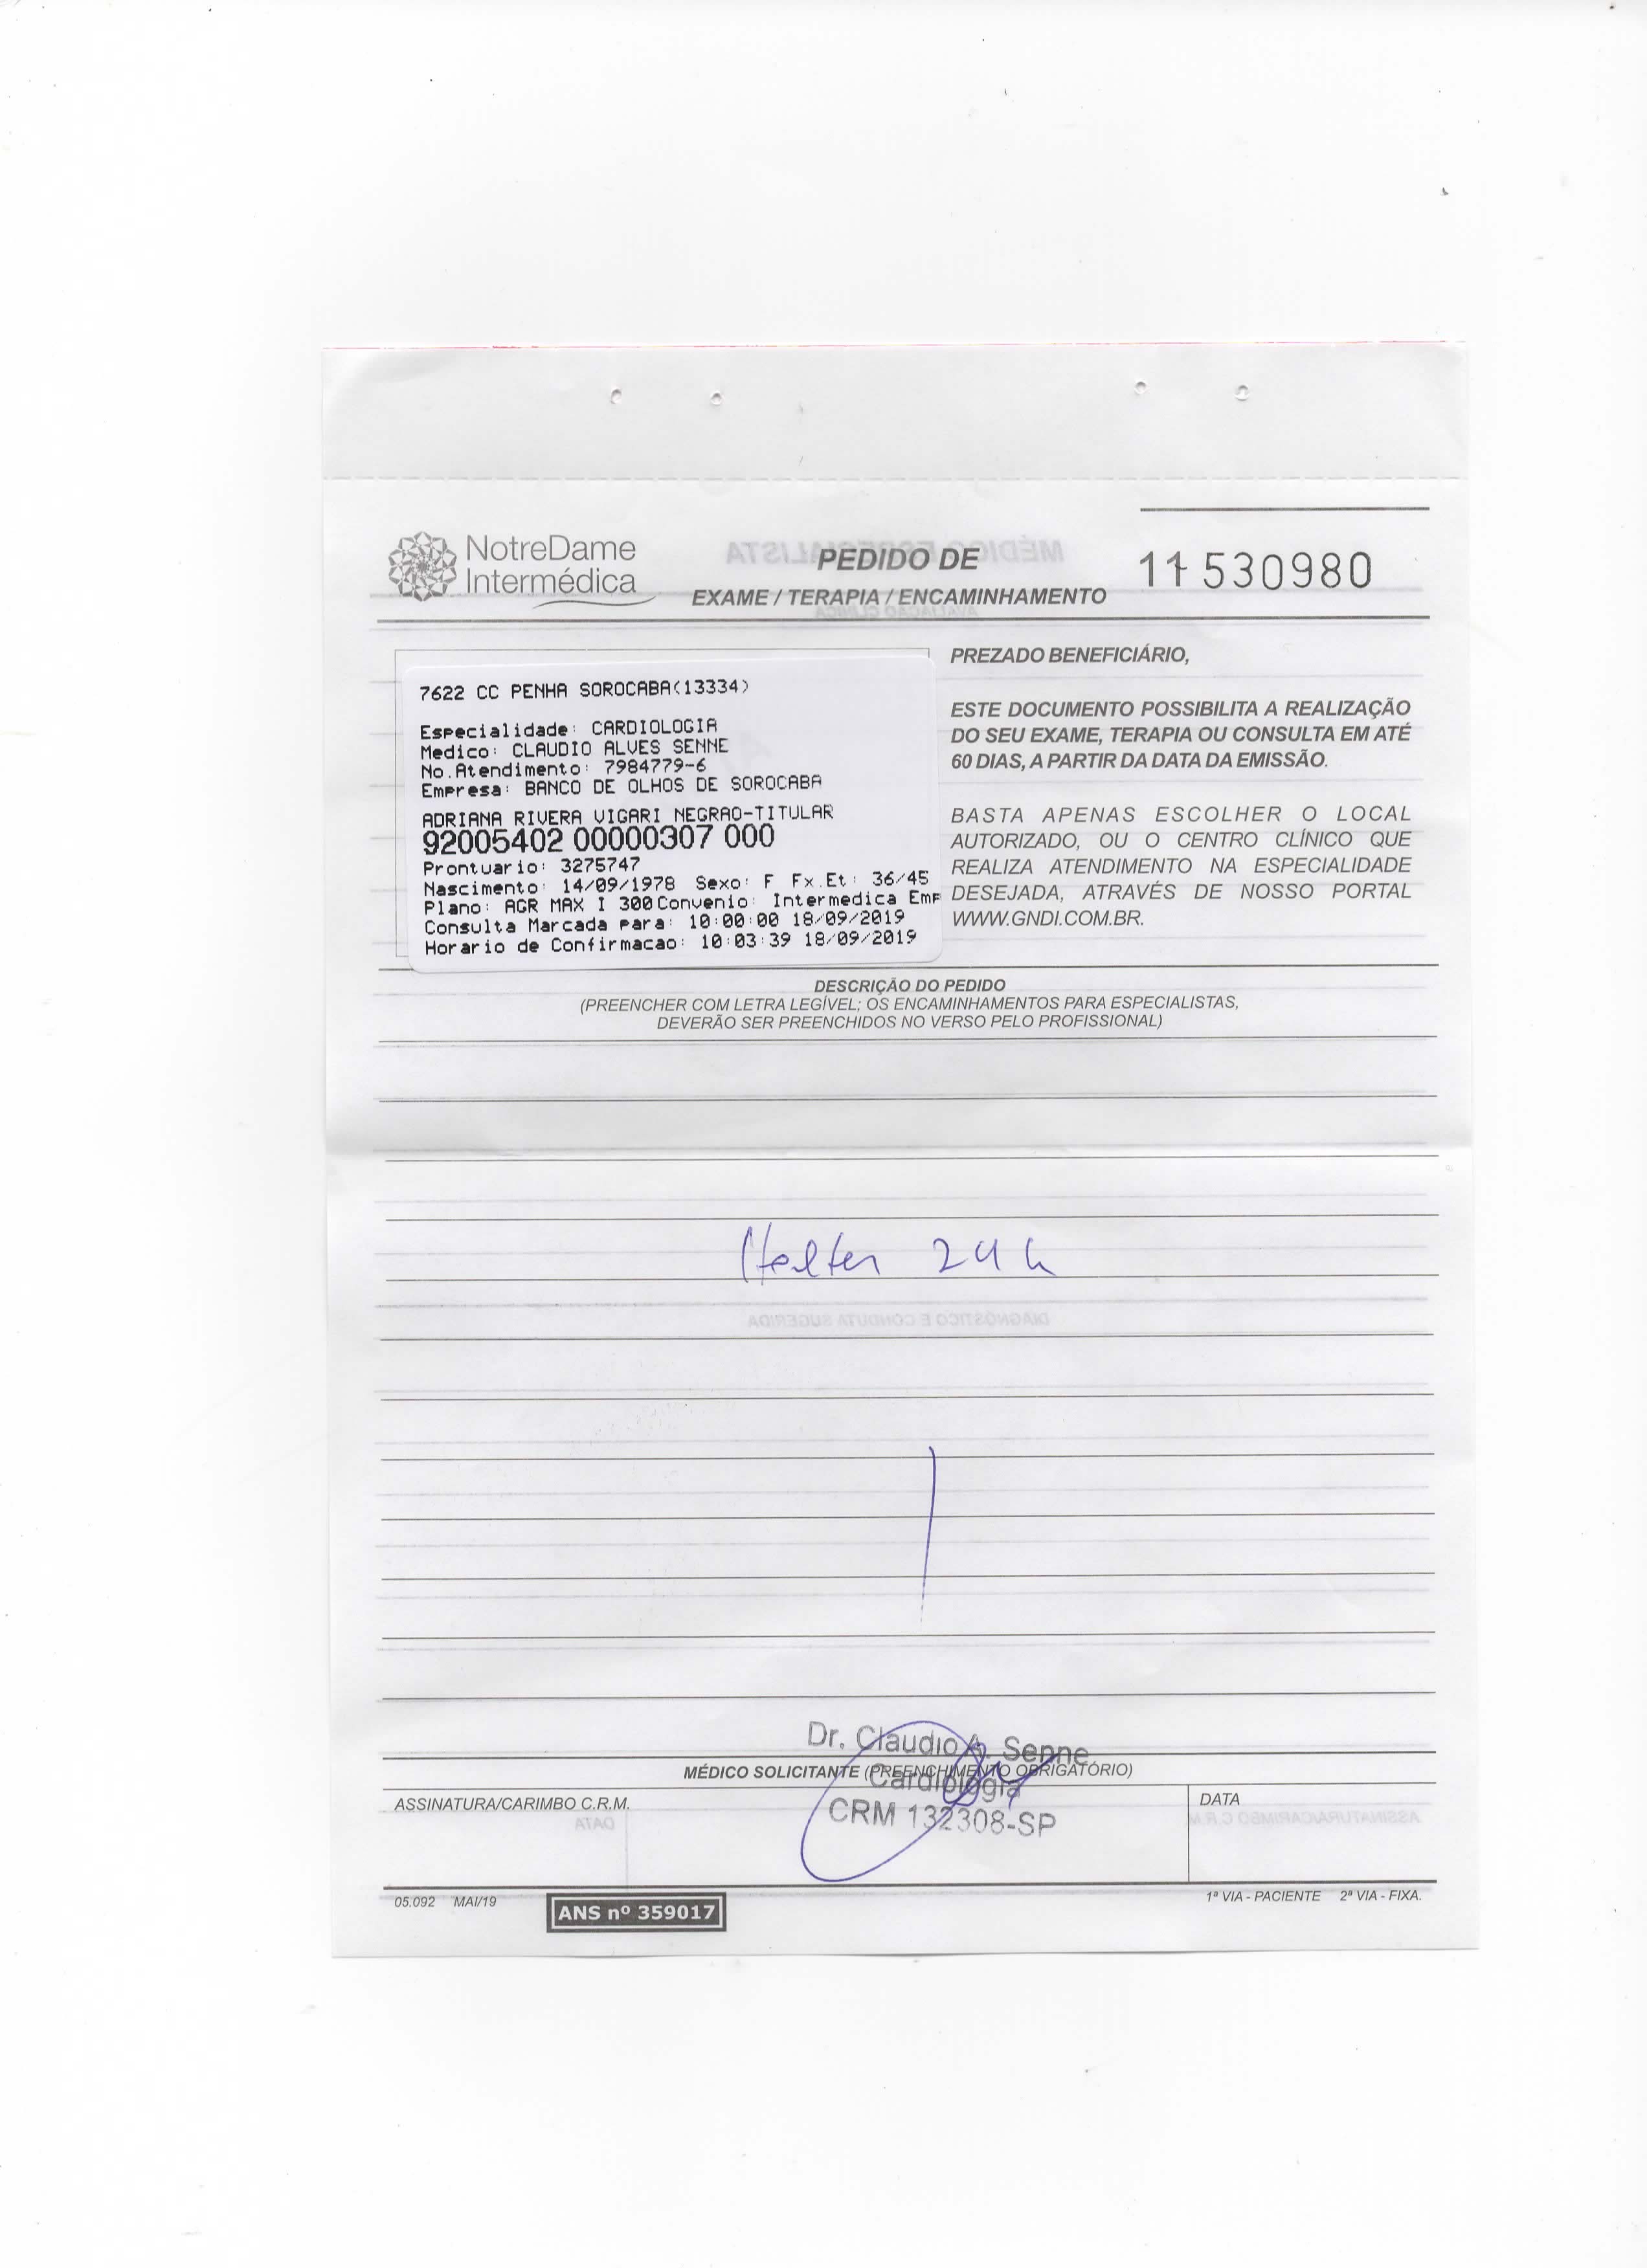 NotreDame
Intermédica
PEDIDO DE
EXAME / TERAPIA / ENCAMINHAMENTO
11 530980
7622 CC PENHA SOROCABA(13334)
Especialidade: CARDIOLOGIA
Medico: CLAUDIO ALVES SENNE
No.Atendimento: 7984779-6
Empresa: BANCO DE OLHOS DE SOROCABA
ADRIANA RIVERA VIGARI NEGRAO-TITULAR
92005402 00000307 000
Prontuario: 3275747
Nascimento: 14/09/1978 Sexo: F Fx.Et: 36/45
Plano: AGR MAX I 300 Convenio: Intermedica Emp
Consulta Marcada para: 10:00:00 18/09/2019
Horario de Confirmacao: 10:03:39 18/09/2019
PREZADO BENEFICIÁRIO,
ESTE DOCUMENTO POSSIBILITA A REALIZAÇÃO
DO SEU EXAME, TERAPIA OU CONSULTA EM ATÉ
60 DIAS, A PARTIR DA DATA DA EMISSÃO.
BASTA APENAS ESCOLHER O LOCAL
AUTORIZADO, OU O CENTRO CLÍNICO QUE
REALIZA ATENDIMENTO NA ESPECIALIDADE
DESEJADA, ATRAVÉS DE NOSSO PORTAL
WWW.GNDI.COM.BR.
DESCRIÇÃO DO PEDIDO
(PREENCHER COM LETRA LEGÍVEL; OS ENCAMINHAMENTOS PARA ESPECIALISTAS,
DEVERÃO SER PREENCHIDOS NO VERSO PELO PROFISSIONAL)
Holter 24 h
Dr. Claudio A. Senne
MÉDICO SOLICITANTE (PREENCHIMENTO OBRIGATÓRIO)
Cardiologia
ASSINATURA/CARIMBO C.R.M.
CRM 132308-SP
DATA
05.092 MAI/19
ANS nº 359017
1ª VIA - PACIENTE 2ª VIA - FIXA.